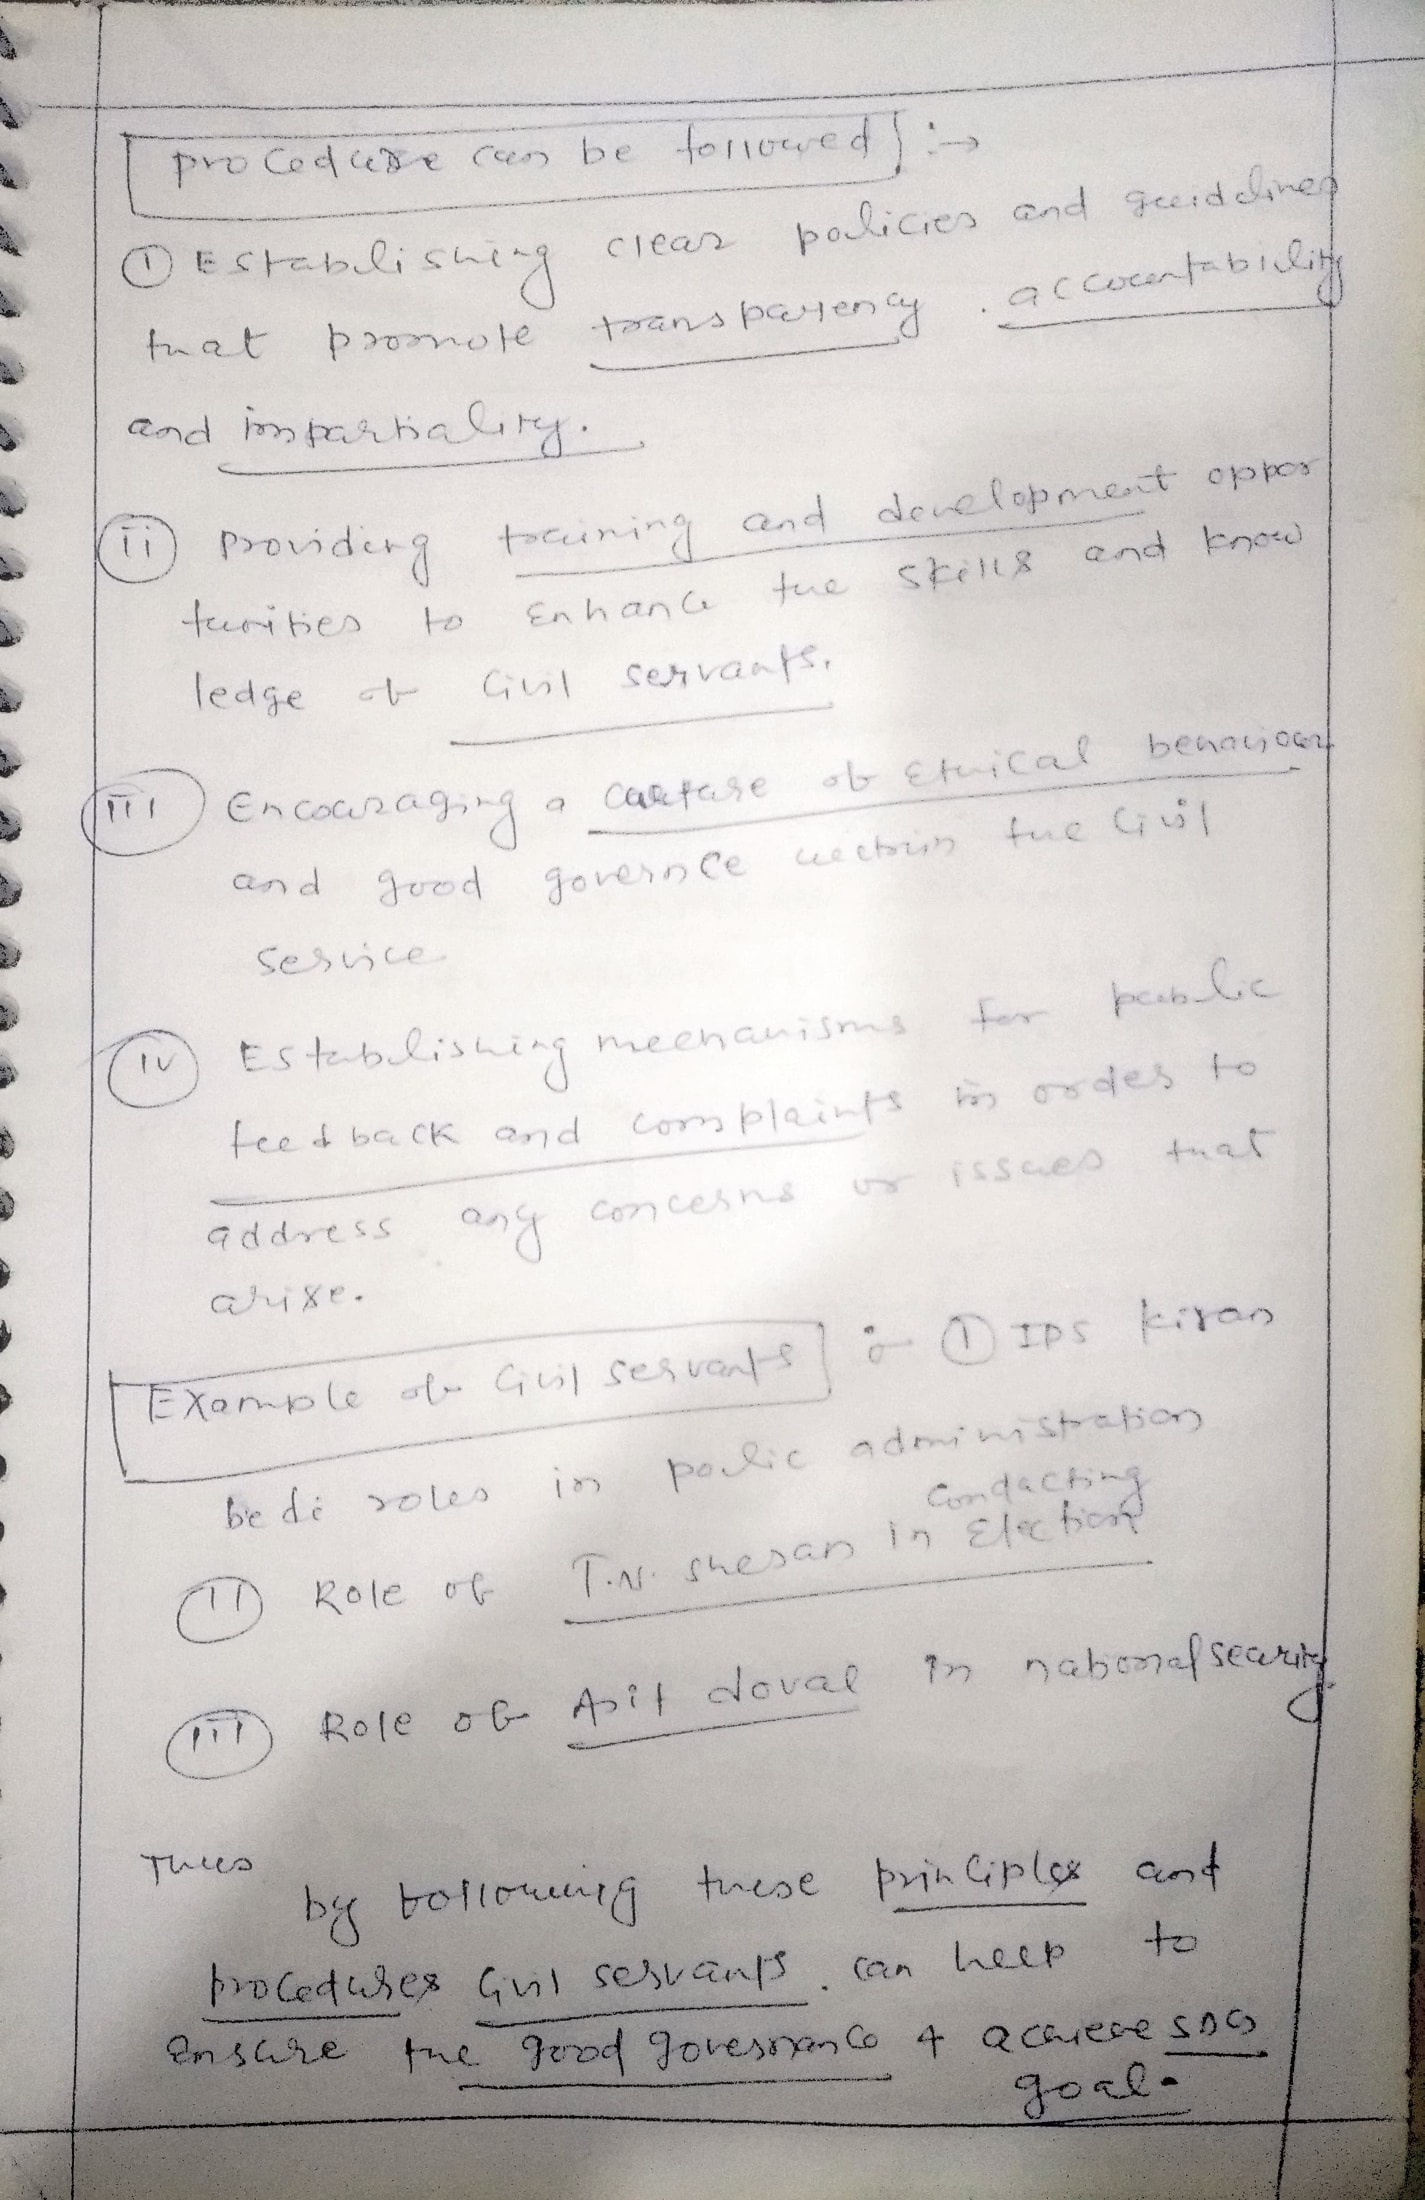 procedure can be followed :→
① Establishing clear policies and guidelines
that promote transparency, accountability
and impartiality.
ii Providing training and development oppor
tunities to enhance the skills and know
ledge of Civil servants.
iii Encouraging a culture of Ethical behaviour
and good governce within the Civil
service
iv Establishing mechanisms for public
feedback and complaints in order to
address any concerns or issues that
arise.
Example of Civil servants :- ① IPS kiran
bedi roles in poulic administration
conducting
ii Role of T.N. shesan in Election
iii Role of Ajit doval in national security.
Thus
by following these principles and
procedures Civil servants, can help to
ensure the good governance & achieve SDG
goal.